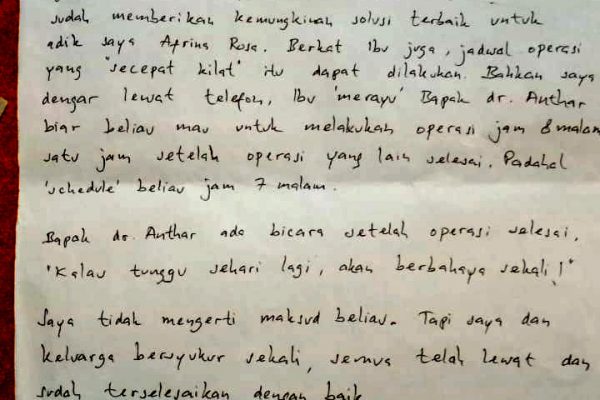 sudah memberikan kemungkinan solusi terbaik untuk
adik saya Afrina Rosa. Berkat Ibu juga, jadwal operasi
yang "secepat kilat" itu dapat dilakukan. Bahkan saya
dengar lewat telefon, Ibu 'merayu' Bapak dr. Anthar
biar beliau mau untuk melakukan operasi jam 8 malam
satu jam setelah operasi yang lain selesai. Padahal
'schedule' beliau jam 7 malam.
Bapak dr. Anthar ada bicara setelah operasi selesai,
"Kalau tunggu sehari lagi, akan berbahaya sekali!"
Saya tidak mengerti maksud beliau. Tapi saya dan
keluarga bersyukur sekali, semua telah lewat dan
sudah terselesaikan dengan baik